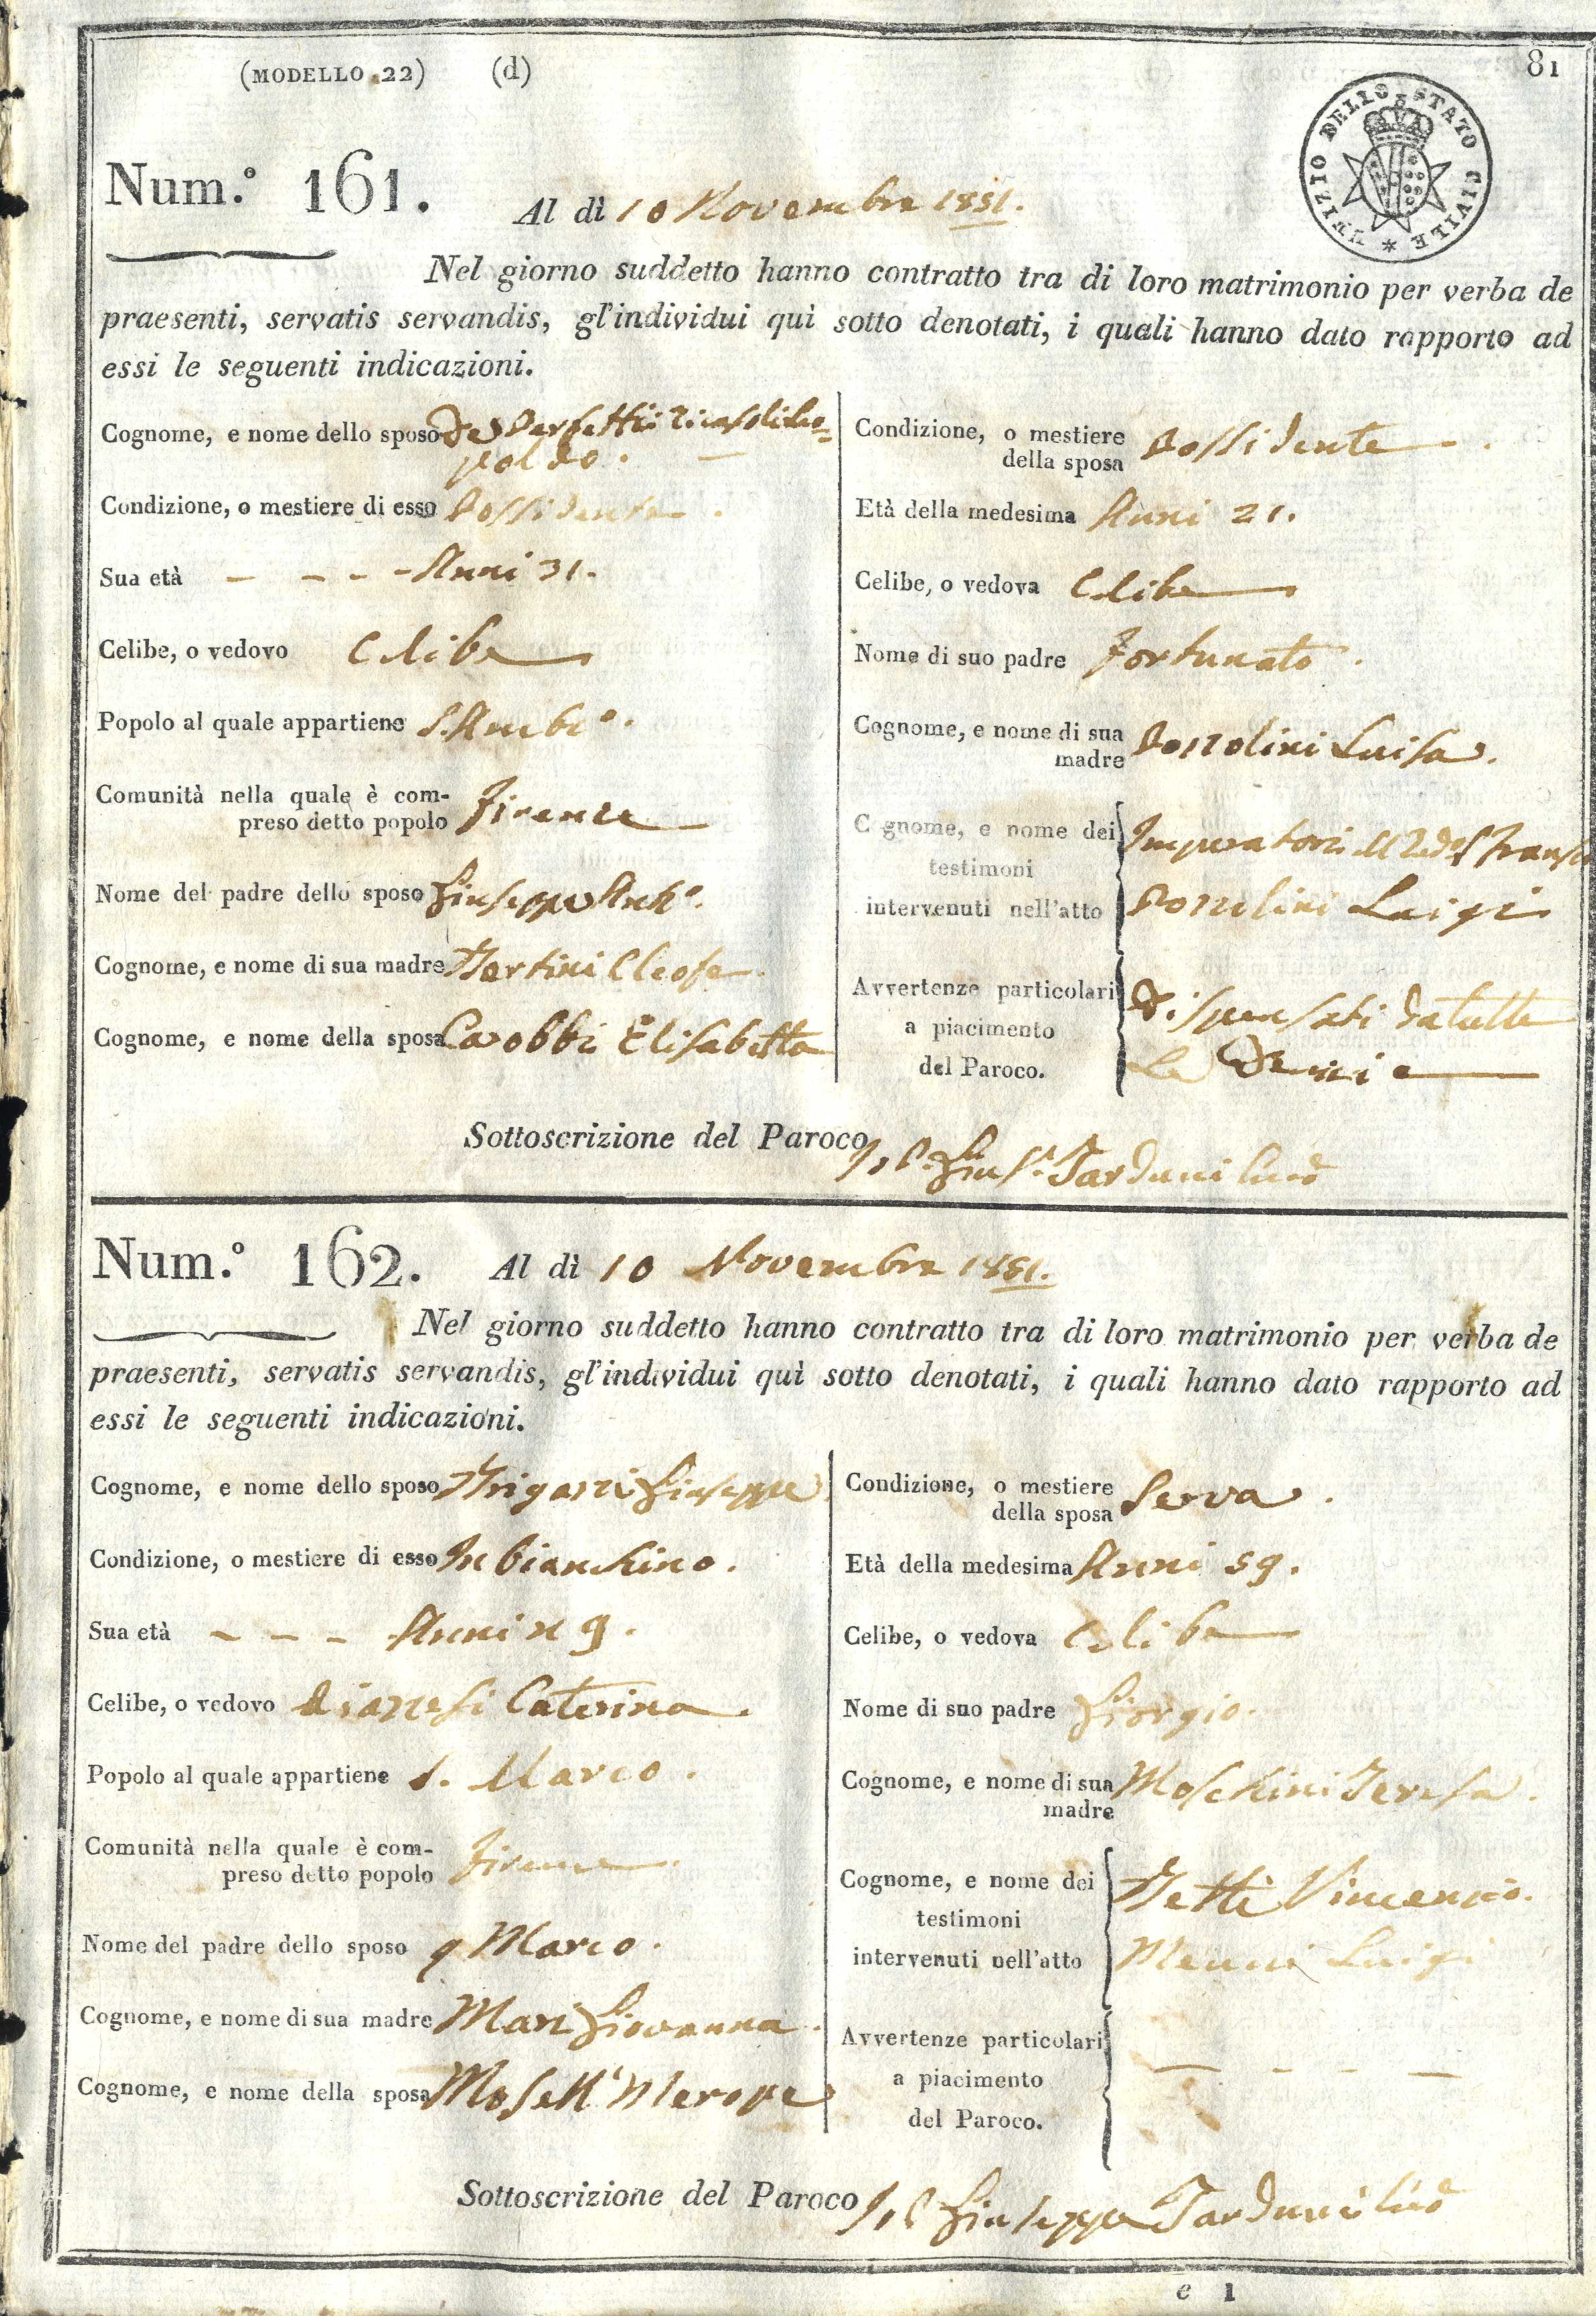 (MODELLO 22) (d) 81
UFIZIO DELLO STATO CIVILE *
Num.º 161. Al dì 10 Novembre 1851.
Nel giorno suddetto hanno contratto tra di loro matrimonio per verba de
praesenti, servatis servandis, gl'individui quì sotto denotati, i quali hanno dato rapporto ad
essi le seguenti indicazioni.
Cognome, e nome dello sposo de Perfetti Ricasoli Leo=
poldo.
Condizione, o mestiere di esso Possidente.
Sua età - - - - Anni 31.
Celibe, o vedovo Celibe
Popolo al quale appartiene S. Ambº.
Comunità nella quale è com-
preso detto popolo Firenze
Nome del padre dello sposo Giuseppe Antº.
Cognome, e nome di sua madre Martini Cleofe
Cognome, e nome della sposa Carobbi Elisabetta
Condizione, o mestiere
della sposa Possidente.
Età della medesima Anni 21.
Celibe, o vedova Celibe
Nome di suo padre Fortunato.
Cognome, e nome di sua
madre Ponzolini Luisa.
Cognome, e nome dei
testimoni
intervenuti nell'atto
Imperatori
Luigi
Avvertenze particolari
a piacimento
del Paroco.
Dispensati da tutte
le Denunie
Sottoscrizione del Paroco Tarduni
Num.º 162. Al dì 10 Novembre 1851.
Nel giorno suddetto hanno contratto tra di loro matrimonio per verba de
praesenti, servatis servandis, gl'individui quì sotto denotati, i quali hanno dato rapporto ad
essi le seguenti indicazioni.
Cognome, e nome dello sposo Giuseppe
Condizione, o mestiere di esso Imbianchino.
Sua età - - - Anni
Celibe, o vedovo Caterina.
Popolo al quale appartiene S. Marco.
Comunità nella quale è com-
preso detto popolo Firenze
Nome del padre dello sposo q Marco.
Cognome, e nome di sua madre Mari Giovanna.
Cognome, e nome della sposa Moselli Merope
Condizione, o mestiere
della sposa Serva.
Età della medesima Anni 59.
Celibe, o vedova Celibe
Nome di suo padre Giorgio.
Cognome, e nome di sua
madre Moschini Teresa.
Cognome, e nome dei
testimoni
intervenuti nell'atto
Vincenzio.
Menni Luigi
Avvertenze particolari
a piacimento
del Paroco.
- - - -
Sottoscrizione del Paroco Giuseppe Tarduni
e 1